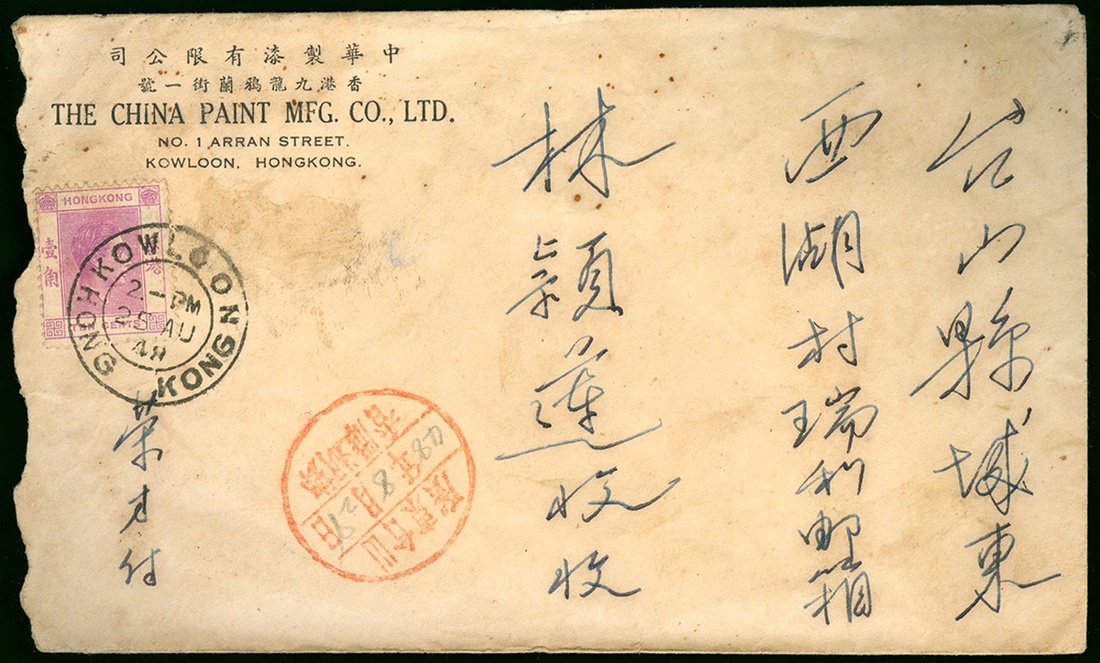 中華製漆有限公司
香港九龍鴉蘭街一號
THE CHINA PAINT MFG. CO., LTD.
NO. 1 ARRAN STREET,
KOWLOON, HONGKONG.
HONGKONG
壹角
CENTS
KOWLOON
HONG KONG
2-PM
25 AU
48
台山縣城東
西湖村瑞利郵箱
林穎蓮收收
荣才付
廣東台山
48年8月29日